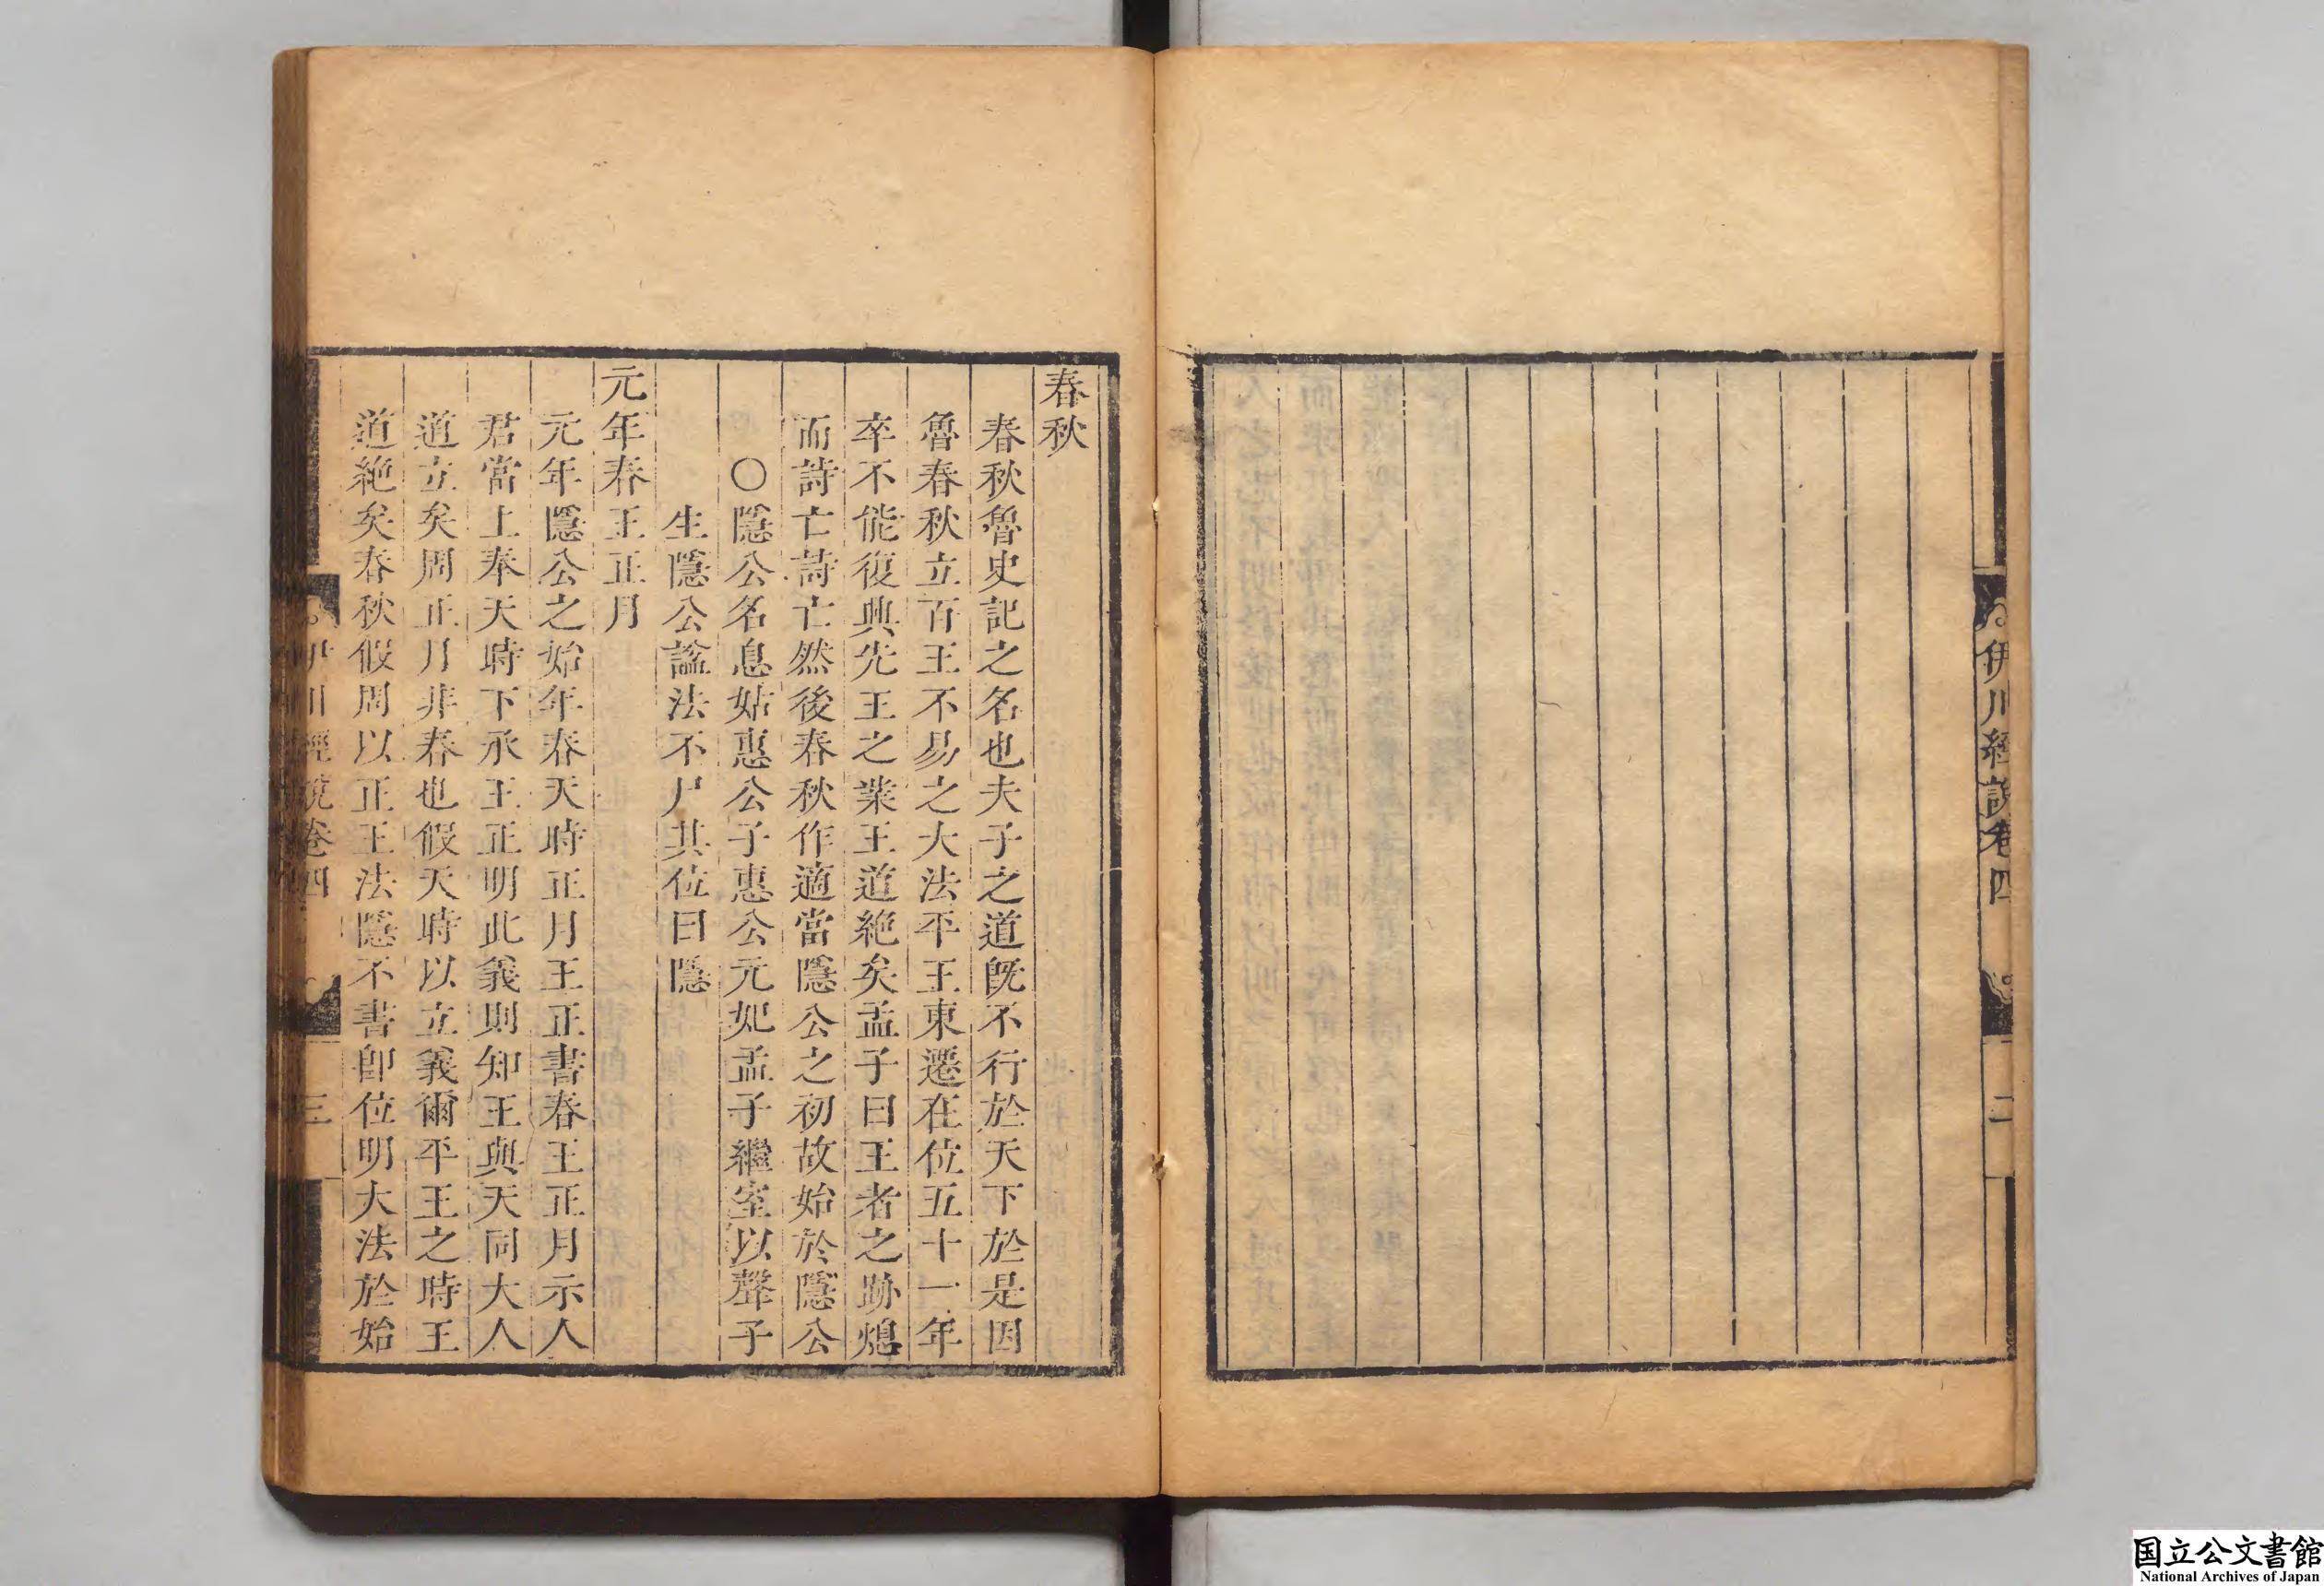 伊川經說卷四
二
春秋
春秋魯史記之名也夫子之道既不行於天下於是因
魯春秋立百王不易之大法平王東遷在位五十一年
卒不能復興先王之業王道絶矣孟子曰王者之跡熄
而詩亡詩亡然後春秋作適當隱公之初故始於隱公
〇隱公名息姑惠公子惠公元妃孟子繼室以聲子
生隱公諡法不尸其位曰隱
元年春王正月
元年隱公之始年春天時正月王正書春王正月示人
君當上奉天時下承王正明此義則知王與天同大人
道立矣周正月非春也假天時以立義爾平王之時王
道絶矣春秋假周以正王法隱不書卽位明大法於始
伊川經說卷四
三
国立公文書館
National Archives of Japan